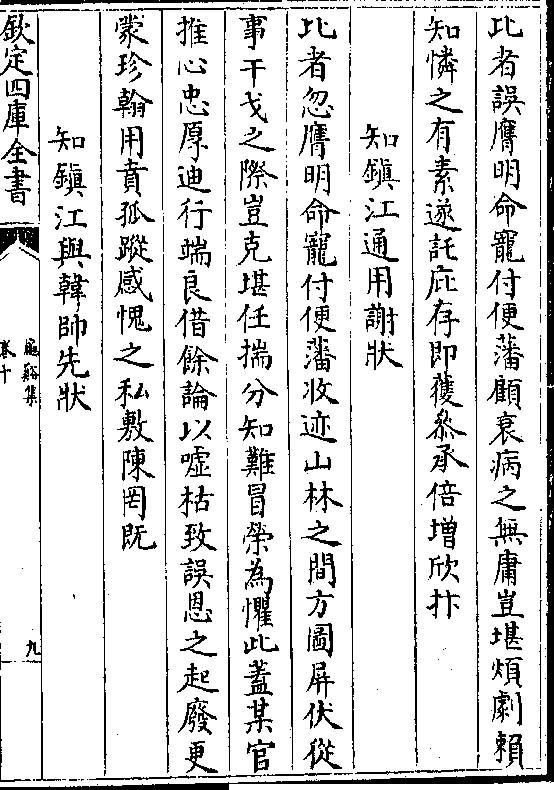 比者誤膺明命寵付便藩顧衰病之無庸豈堪煩劇賴
知憐之有素遂託庇存即獲叅承倍增欣抃
知鎮江通用謝狀
比者忽膺明命寵付便藩收迹山林之間方圖屏伏從
事干戈之際豈克堪任揣分知難冒榮為懼此蓋某官
推心忠厚迪行端良借餘論以噓枯致誤恩之起廢更
蒙珍翰用賁孤蹤感愧之私敷陳罔既
知鎮江與韓帥先狀
欽定四庫全書
龜谿集
卷十
九